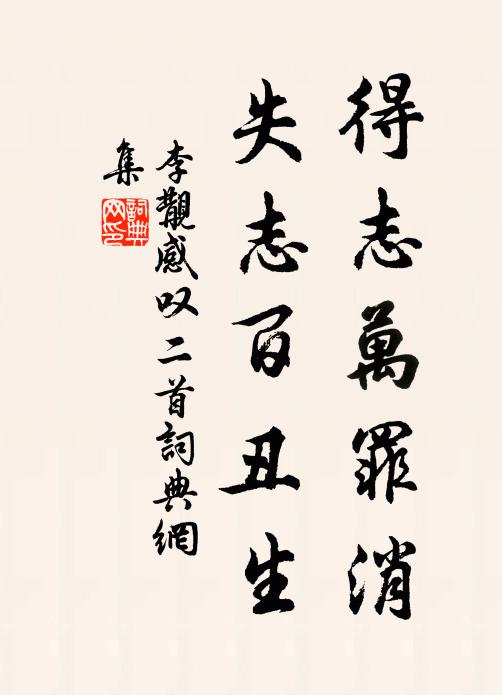 得志萬罪消
失志百丑生
李覯感叹二首詞典網
集
詞典
网印